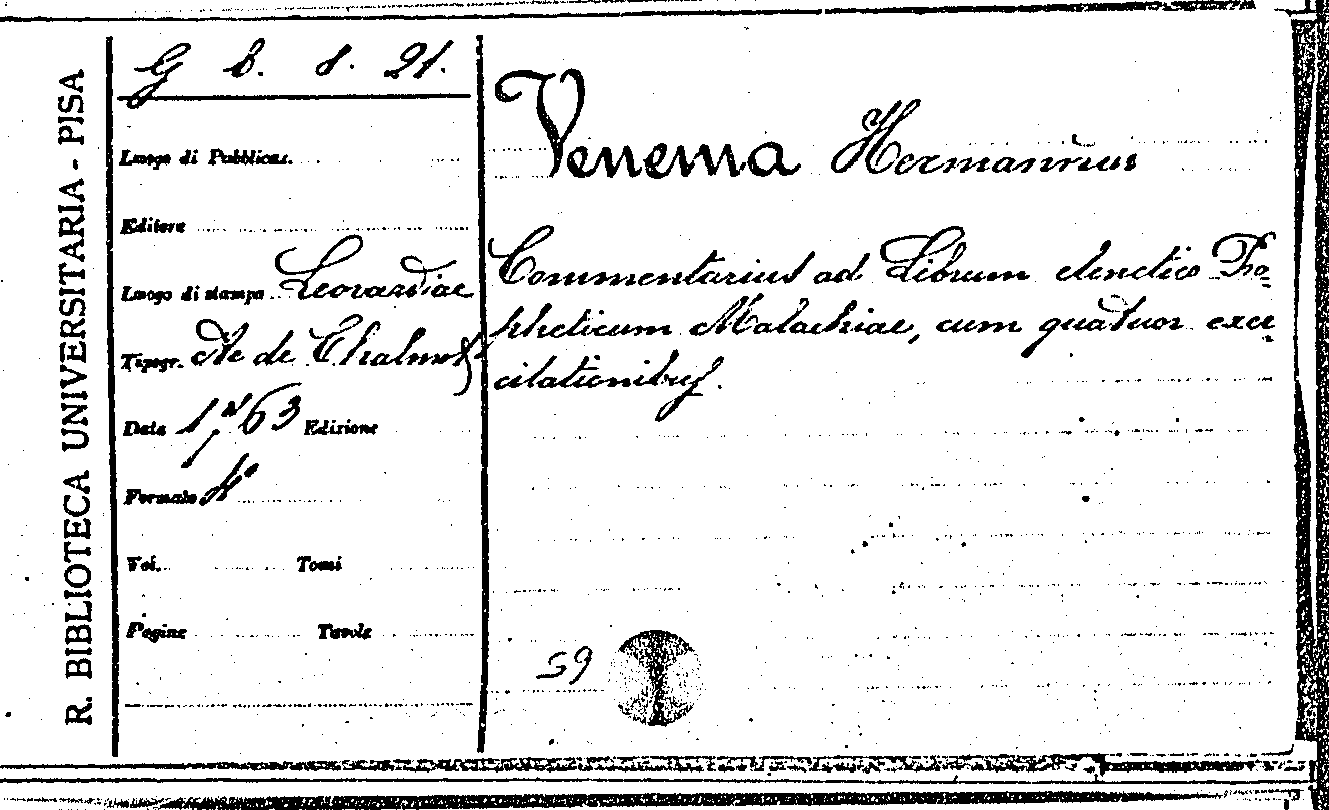 R. BIBLIOTECA UNIVERSITARIA - PISA
G b. 8. 21.
Luogo di Pubblicaz.
Editore
Luogo di stampa Leovardiae
Tipogr. de Chalmot
Data 1763 Edizione
Formato 4°
Vol. Tomi
Pagine Tavole
Venema Hermannus
Commentarius ad Librum elenctico Pro=
pheticum Malachiae, cum quatuor exer
citationibus.
59